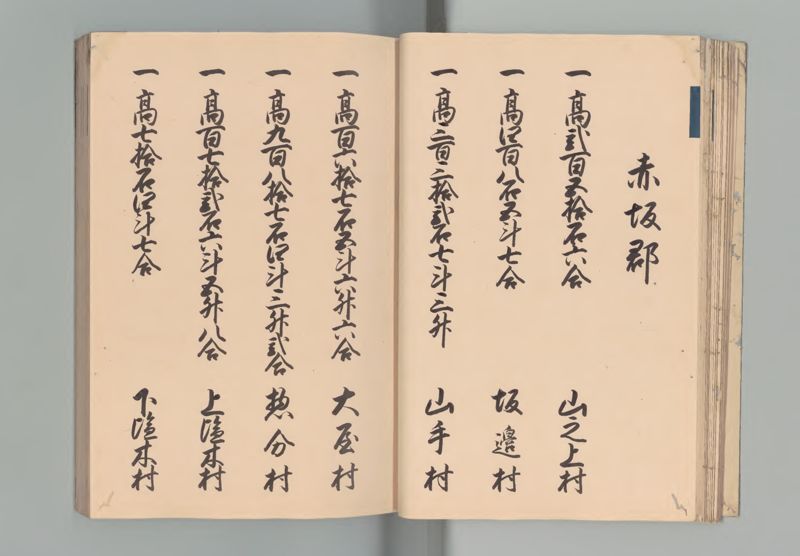 赤坂郡
一高弐百五拾石六合 山之上村
一高四百八石五斗七合 坂邉村
一高三百三拾弐石七斗三升 山手村
一高百六拾七石五斗六升六合 大屋村
一高九百八拾七石四斗三升弐合 惣分村
一高百七拾弐石六斗五升八合 上塩木村
一高七拾石四斗七合 下塩木村